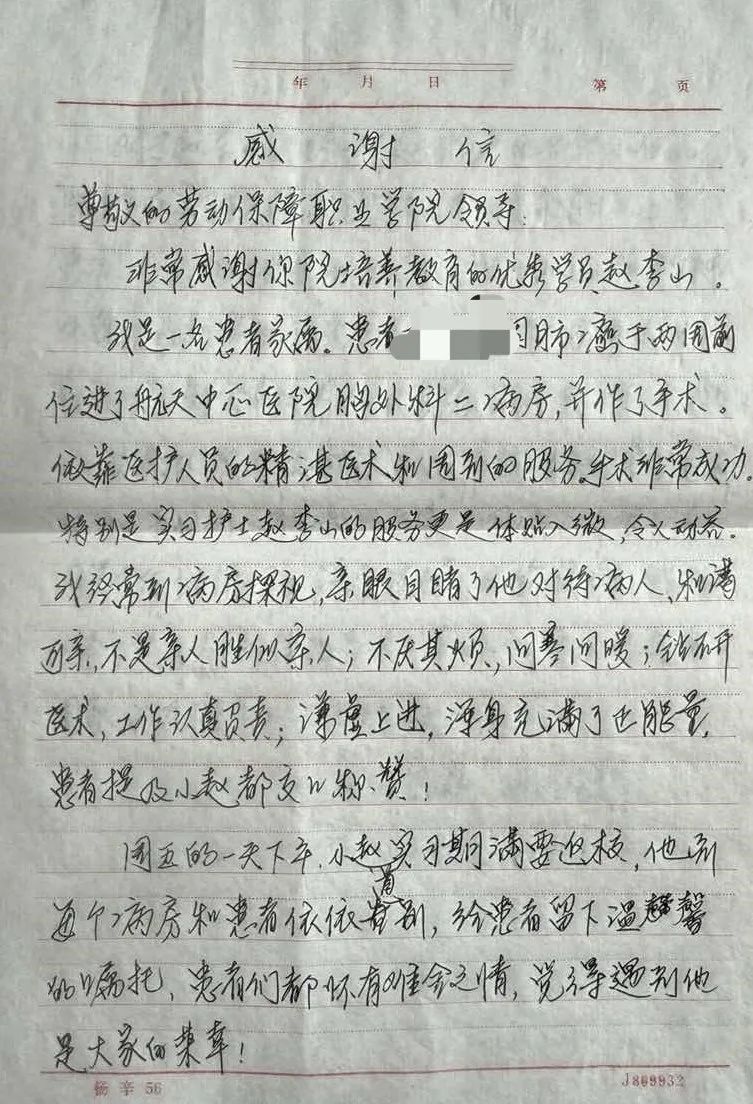 年 月 日 第 页
感谢信
尊敬的劳动保障职业学院领导:
非常感谢你院培养教育的优秀学员赵李山。
我是一名患者家属。患者 因肺癌于两周前
住进了航天中心医院胸外科二病房,并作了手术。
依靠医护人员的精湛医术和周到的服务。手术非常成功。
特别是实习护士赵李山的服务更是体贴入微,令人动容。
我经常到病房探视,亲眼目睹了他对待病人、和蔼
可亲,不是亲人胜似亲人;不厌其烦,问寒问暖;钻研
医术,工作认真负责;谦虚上进,浑身充满了正能量,
患者提及小赵都交口称赞!
周五的一天下午,小赵实习期满要返校,他到
每个病房和患者依依道别,给患者留下温馨
的嘱托,患者们都怀有难舍之情,觉得遇到他
是大家的荣幸!
杨辛 56 J809932